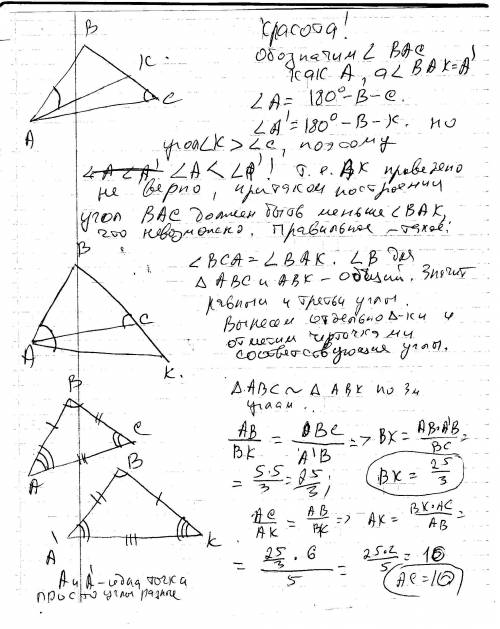 Красота!
Обозначим ∠ BAC
как A, а ∠ BAK = A'
∠A = 180° - B - C.
∠A' = 180° - B - K. но
угол ∠K > ∠C, поэтому
∠A < ∠A'! т.е. AK проведено
не верно, при таком построении
угол BAC должен быть меньше ∠BAK,
что невозможно. Правильное - такое:
B
K
C
A
∠BCA = ∠BAK. ∠B для
Δ ABC и ABK - общий. Значит
равны и третьи углы.
Вынесем отдельно Δ-ки и
отметим черточками
соответствующие углы.
B
A
C
K.
Δ ABC ~ Δ ABK по 3м
углам..
AB/BK = BC/A'B => BK = AB·A'B/BC =
= 5·5/3 = 25/3; BK = 25/3
AC/AK = AB/BK => AK = BK·AC/AB =
= 25/3 · 6 / 5 = 25·2/5 = 10
AC = 10
B
A
C
B
A'
K
A и A' - одна точка
просто углы разные